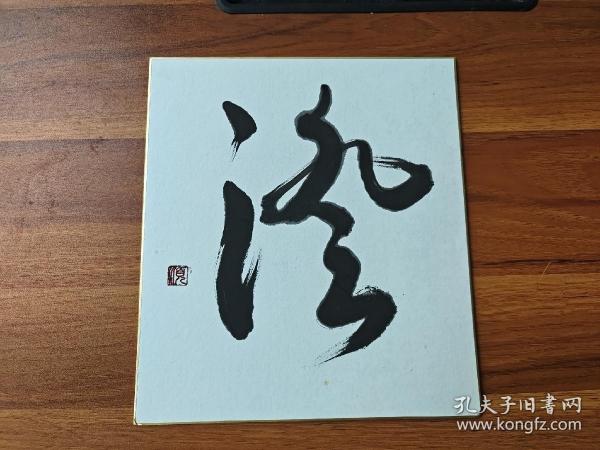 澄
孔夫子旧书网
www.kongfz.com